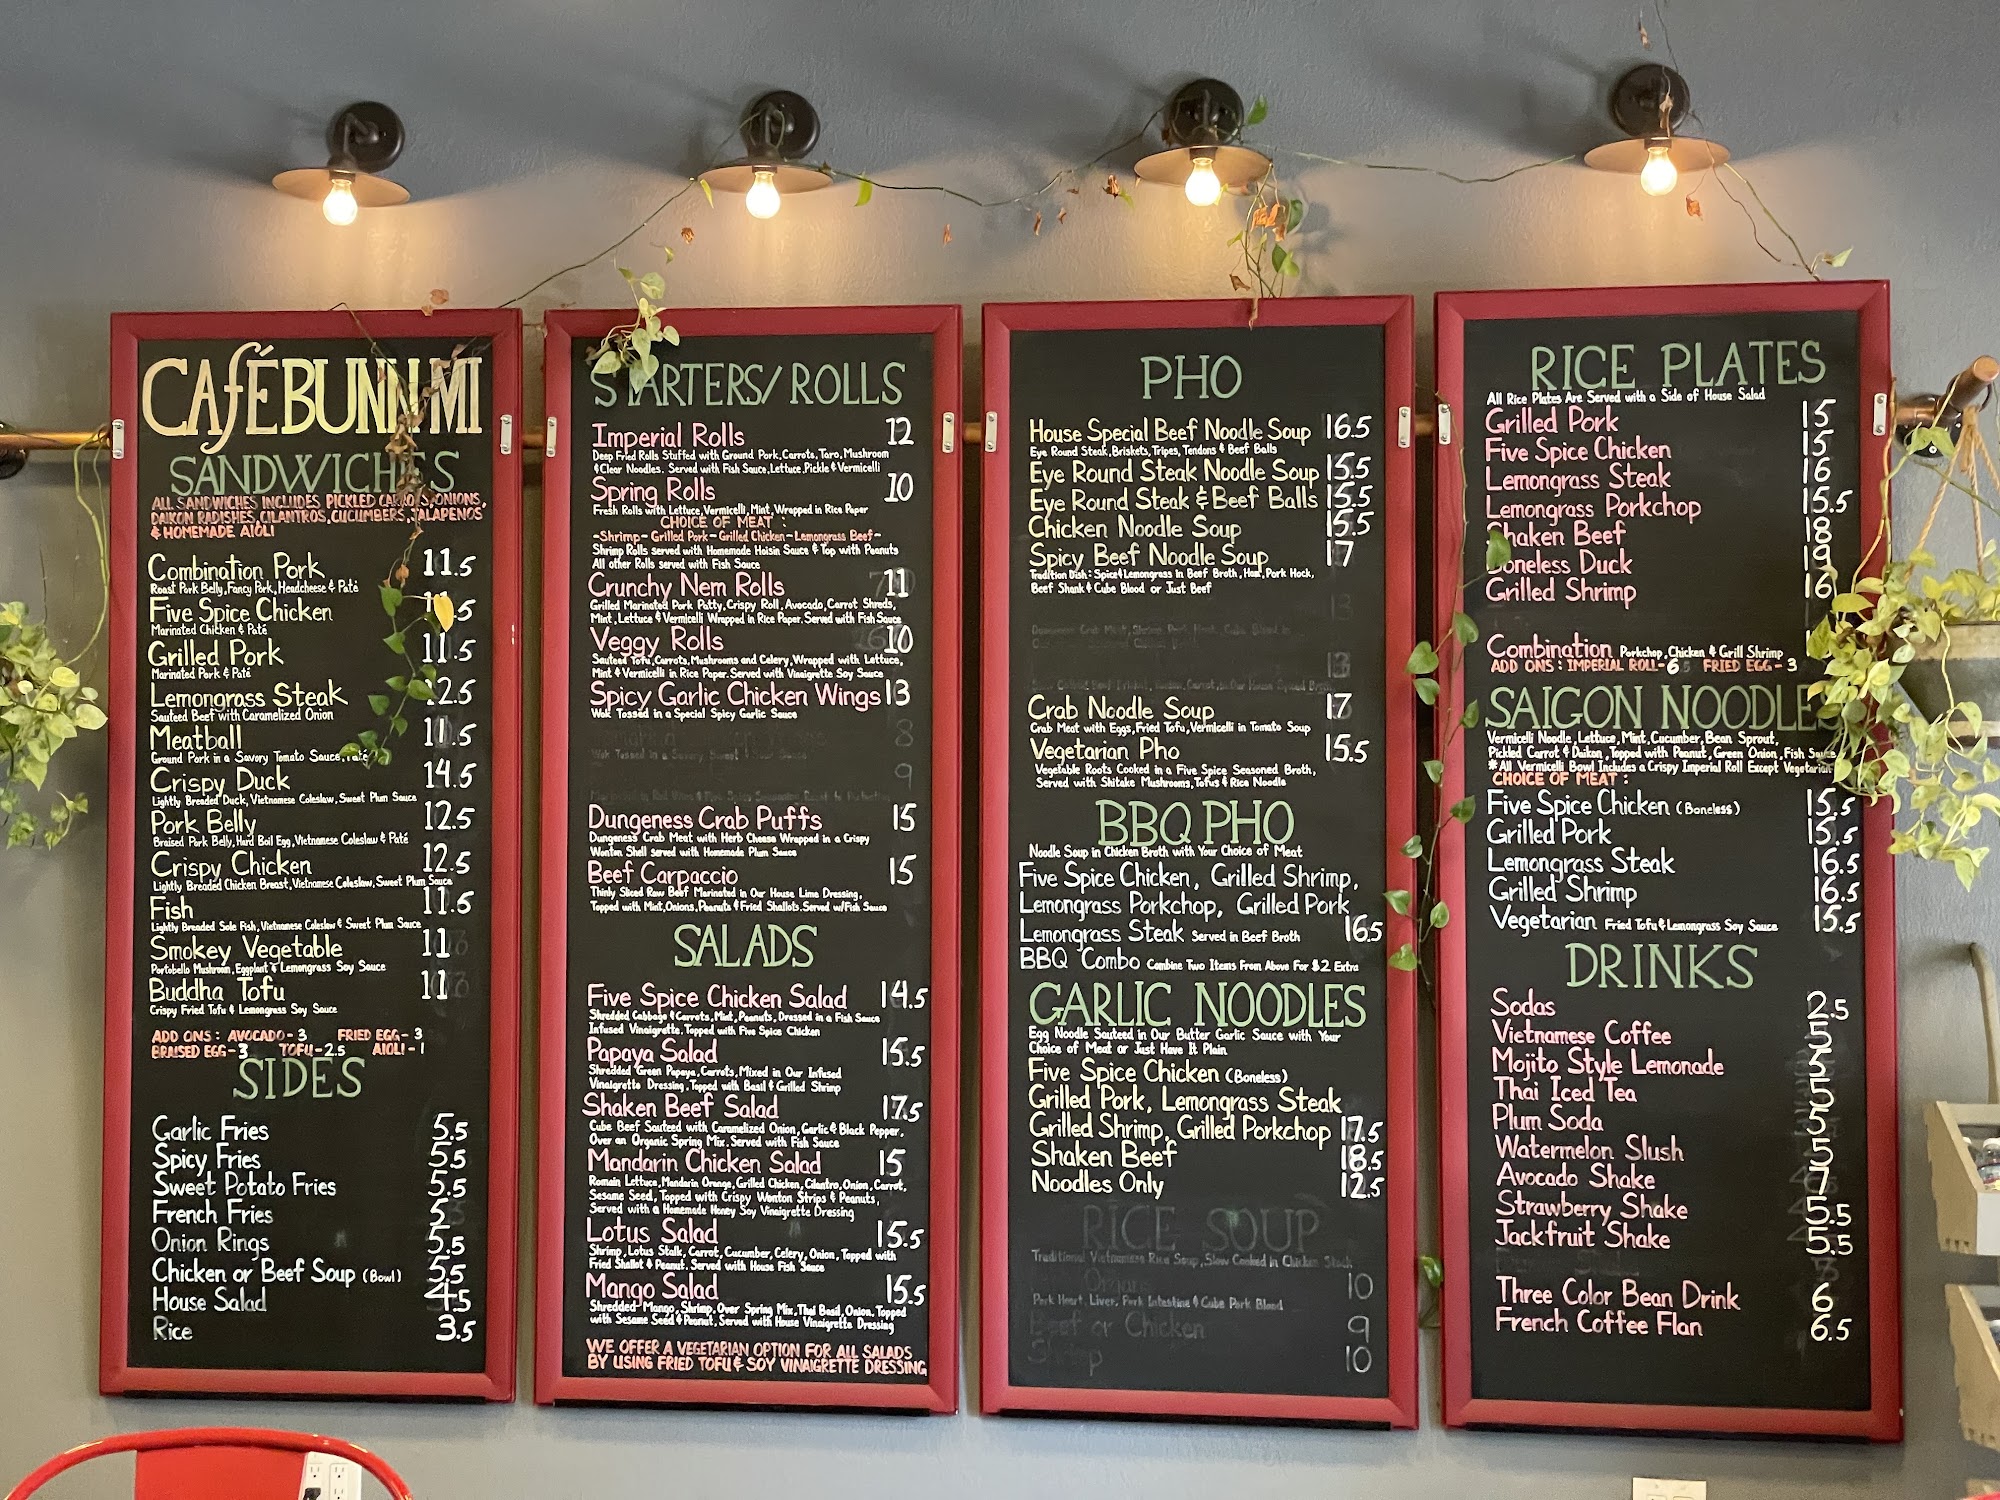 CAFÉ BUNN MI
SANDWICHES
ALL SANDWICHES INCLUDES PICKLED CARROTS, ONIONS,
DAIKON RADISHES, CILANTROS, CUCUMBERS, JALAPENOS
& HOMEMADE AIOLI
Combination Pork 11.5
Roast Pork Belly, Fancy Pork, Headcheese & Paté
Five Spice Chicken 11.5
Marinated Chicken & Paté
Grilled Pork 11.5
Marinated Pork & Paté
Lemongrass Steak 12.5
Sauteed Beef with Caramelized Onion
Meatball 11.5
Ground Pork in a Savory Tomato Sauce, Paté
Crispy Duck 14.5
Lightly Breaded Duck, Vietnamese Coleslaw, Sweet Plum Sauce
Pork Belly 12.5
Braised Pork Belly, Hard Boil Egg, Vietnamese Coleslaw & Paté
Crispy Chicken 12.5
Lightly Breaded Chicken Breast, Vietnamese Coleslaw, Sweet Plum Sauce
Fish 11.5
Lightly Breaded Sole Fish, Vietnamese Coleslaw & Sweet Plum Sauce
Smokey Vegetable 11
Portobello Mushroom, Eggplant & Lemongrass Soy Sauce
Buddha Tofu 11
Crispy Fried Tofu & Lemongrass Soy Sauce
ADD ONS: AVOCADO - 3 FRIED EGG - 3
BRAISED EGG - 3 TOFU - 2.5 AIOLI - 1
SIDES
Garlic Fries 5.5
Spicy Fries 5.5
Sweet Potato Fries 5.5
French Fries 5
Onion Rings 5.5
Chicken or Beef Soup (Bowl) 5.5
House Salad 4.5
Rice 3.5
STARTERS/ROLLS
Imperial Rolls 12
Deep Fried Rolls Stuffed with Ground Pork, Carrots, Taro, Mushroom
& Clear Noodles. Served with Fish Sauce, Lettuce, Pickle & Vermicelli
Spring Rolls 10
Fresh Rolls with Lettuce, Vermicelli, Mint, Wrapped in Rice Paper
CHOICE OF MEAT :
-Shrimp - Grilled Pork - Grilled Chicken - Lemongrass Beef-
Shrimp Rolls served with Homemade Hoisin Sauce & Top with Peanuts
All other Rolls served with Fish Sauce
Crunchy Nem Rolls 11
Grilled Marinated Pork Patty, Crispy Roll, Avocado, Carrot Shreds,
Mint, Lettuce & Vermicelli Wrapped in Rice Paper. Served with Fish Sauce
Veggy Rolls 10
Sauteed Tofu, Carrots, Mushrooms and Celery, Wrapped with Lettuce,
Mint & Vermicelli in Rice Paper. Served with Vinaigrette Soy Sauce
Spicy Garlic Chicken Wings 13
Wok Tossed in a Special Spicy Garlic Sauce
8
9
Dungeness Crab Puffs 15
Dungeness Crab Meat with Herb Cheese Wrapped in a Crispy
Wonton Shell served with Homemade Plum Sauce
Beef Carpaccio 15
Thinly Sliced Raw Beef Marinated in Our House Lime Dressing,
Topped with Mint, Onions, Peanuts & Fried Shallots. Served w/Fish Sauce
SALADS
Five Spice Chicken Salad 14.5
Shredded Cabbage & Carrots, Mint, Peanuts, Dressed in a Fish Sauce
Infused Vinaigrette, Topped with Five Spice Chicken
Papaya Salad 15.5
Shredded Green Papaya, Carrots, Mixed in Our Infused
Vinaigrette Dressing, Topped with Basil & Grilled Shrimp
Shaken Beef Salad 17.5
Cube Beef Sauteed with Caramelized Onion, Garlic & Black Pepper,
Over an Organic Spring Mix. Served with Fish Sauce
Mandarin Chicken Salad 15
Romain Lettuce, Mandarin Orange, Grilled Chicken, Cilantro, Onion, Carrot,
Sesame Seed, Topped with Crispy Wonton Strips & Peanuts,
Served with a Homemade Honey Soy Vinaigrette Dressing
Lotus Salad 15.5
Shrimp, Lotus Stalk, Carrot, Cucumber, Celery, Onion, Topped with
Fried Shallot & Peanut. Served with House Fish Sauce
Mango Salad 15.5
Shredded Mango, Shrimp, Over Spring Mix, Thai Basil, Onion, Topped
with Sesame Seed & Peanut, Served with House Vinaigrette Dressing
WE OFFER A VEGETARIAN OPTION FOR ALL SALADS
BY USING FRIED TOFU & SOY VINAIGRETTE DRESSING
PHO
House Special Beef Noodle Soup 16.5
Eye Round Steak, Briskets, Tripes, Tendons & Beef Balls
Eye Round Steak Noodle Soup 15.5
Eye Round Steak & Beef Balls 15.5
Chicken Noodle Soup 15.5
Spicy Beef Noodle Soup 17
Tradition Dish: Spice & Lemongrass in Beef Broth, Ham, Pork Hock,
Beef Shank & Cube Blood or Just Beef
13
13
Crab Noodle Soup 17
Crab Meat with Eggs, Fried Tofu, Vermicelli in Tomato Soup
Vegetarian Pho 15.5
Vegetable Roots Cooked in a Five Spice Seasoned Broth,
Served with Shitake Mushrooms, Tofus & Rice Noodle
BBQ PHO
Noodle Soup in Chicken Broth with Your Choice of Meat
Five Spice Chicken, Grilled Shrimp,
Lemongrass Porkchop, Grilled Pork
Lemongrass Steak Served in Beef Broth 16.5
BBQ Combo Combine Two Items From Above For $2 Extra
GARLIC NOODLES
Egg Noodle Sauteed in Our Butter Garlic Sauce with Your
Choice of Meat or Just Have It Plain
Five Spice Chicken (Boneless)
Grilled Pork, Lemongrass Steak
Grilled Shrimp, Grilled Porkchop 17.5
Shaken Beef 18.5
Noodles Only 12.5
RICE SOUP
Traditional Vietnamese Rice Soup, Slow Cooked in Chicken Stock
Organ 10
Pork Heart, Liver, Pork Intestine & Cube Pork Blood
Beef or Chicken 9
Shrimp 10
RICE PLATES
All Rice Plates Are Served with a Side of House Salad
Grilled Pork 15
Five Spice Chicken 15
Lemongrass Steak 16
Lemongrass Porkchop 15.5
Shaken Beef 18
Boneless Duck 19
Grilled Shrimp 16
Combination Porkchop, Chicken & Grill Shrimp
ADD ONS: IMPERIAL ROLL - 6 FRIED EGG - 3
SAIGON NOODLES
Vermicelli Noodle, Lettuce, Mint, Cucumber, Bean Sprout,
Pickled Carrot & Daikon, Topped with Peanut, Green Onion, Fish Sauce
*All Vermicelli Bowl Includes a Crispy Imperial Roll Except Vegetarian
CHOICE OF MEAT :
Five Spice Chicken (Boneless) 15.5
Grilled Pork 15.5
Lemongrass Steak 16.5
Grilled Shrimp 16.5
Vegetarian Fried Tofu & Lemongrass Soy Sauce 15.5
DRINKS
Sodas 2.5
Vietnamese Coffee 5
Mojito Style Lemonade 5
Thai Iced Tea 5
Plum Soda 5
Watermelon Slush 5
Avocado Shake 7
Strawberry Shake 5.5
Jackfruit Shake 5.5
Three Color Bean Drink 6
French Coffee Flan 6.5